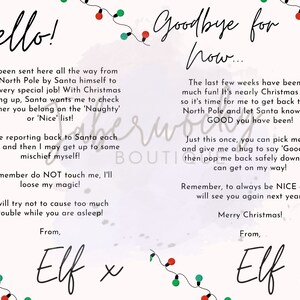 ello!
been sent here all the way from
North Pole by Santa himself to
very special job! With Christmas
ng up, Santa wants me to check
her you belong on the 'Naughty'
or 'Nice' list!
e reporting back to Santa each
and then I may get up to some
mischief myself!
member do NOT touch me, I'll
loose my magic!
will try not to cause too much
ouble while you are asleep!
From,
Elf x
Goodbye for
Now...
The last few weeks have been
much fun! It's nearly Christmas
so it's time for me to get back t
North Pole and let Santa know
GOOD you have been!
Just this once, you can pick me
and give me a hug to say 'Good
then pop me back safely down
can get on my way!
Remember, to always be NICE
will see you again next year
Merry Christmas!
From,
Elf
BOUTIQUE